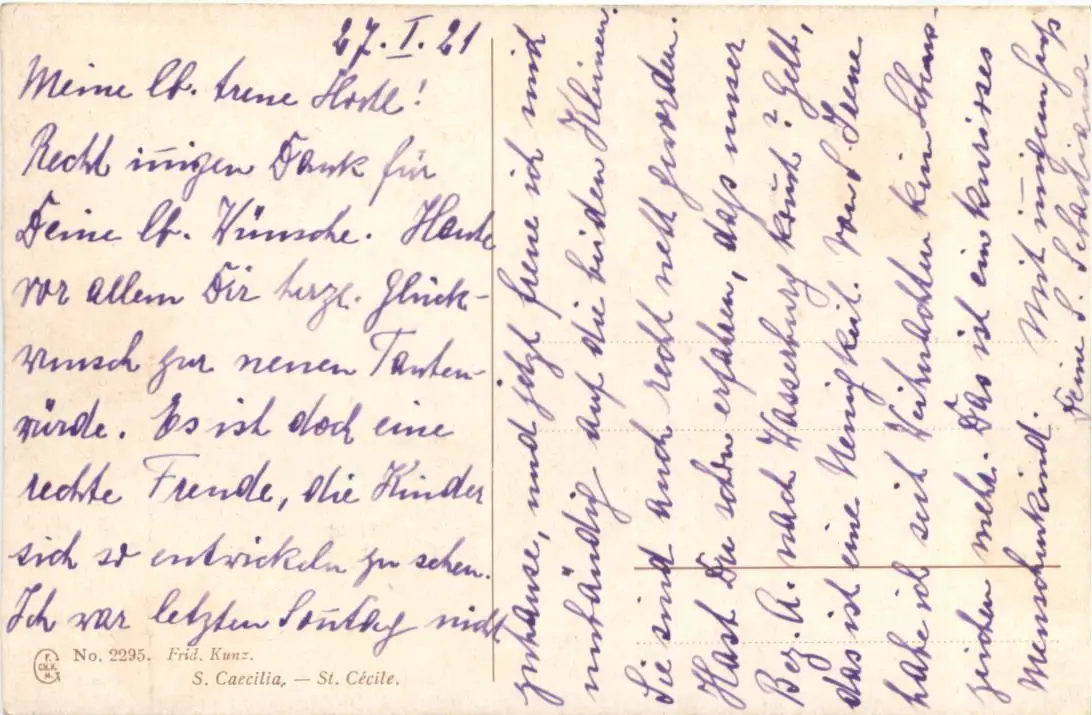 27.I.21
Meine lb. treue Hostl!
Recht innigen Dank für
Deine lb. Wünsche. Heute
vor allem Dir herzl. Glück-
wunsch zur neuen Tanten-
würde. Es ist doch eine
rechte Freude, die Kinder
sich so entwickeln zu sehen.
Ich war letzten Sonntag nicht
zuhause, und jetzt freue ich mich
unbändig auf die beiden Kleinen.
Sie sind auch recht nett geworden.
Hast Du schon erfahren, daß unser
Bez. A. nach Wasserburg kommt? Gelt,
das ist eine Neuigkeit. Von Irene
habe ich seit Weihnachten kein Lebens-
zeichen mehr. Das ist ein kurioses
Menschenkind. Mit innigem Gruß
Deine l.
F. CH. K. M.
No. 2295. Frid. Kunz.
S. Caecilia. — St. Cécile.